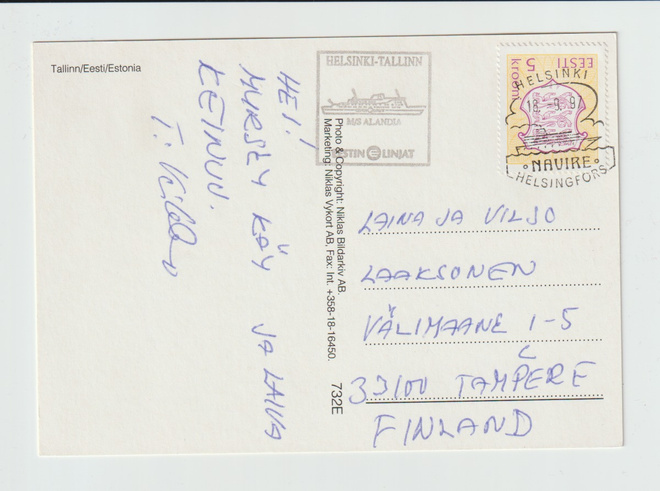 Tallinn/Eesti/Estonia
HEI!
MYRSKY KÄY JA LAIVA
KEINUU.
T:
HELSINKI-TALLINN
M/S ALANDIA
LINJAT
EESTI
5
krooni
HELSINKI
18.-9.-9
NAVIRE
HELSINGFORS
Photo & Copyright: Niklas Bildarkiv AB.
Marketing: Niklas Vykort AB, Fax: Int. +358-18-16450.
732E
LAINA JA VILJO
LAAKSONEN
VÄLIMAANE 1-5
C
33100 TAMPERE
FINLAND